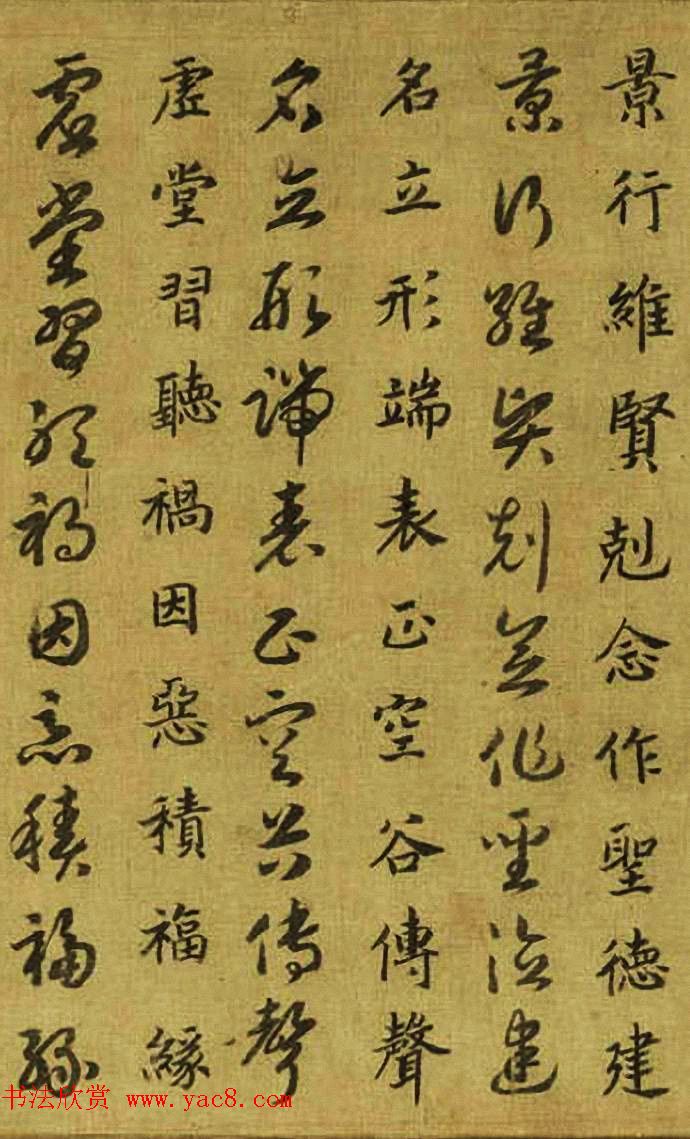 景行維賢剋念作聖德建
景行維賢剋念作聖德建
名立形端表正空谷傳聲
名立形端表正空谷傳聲
虛堂習聽禍因惡積福緣
虛堂習聽禍因惡積福緣
书法欣赏 www.yac8.com